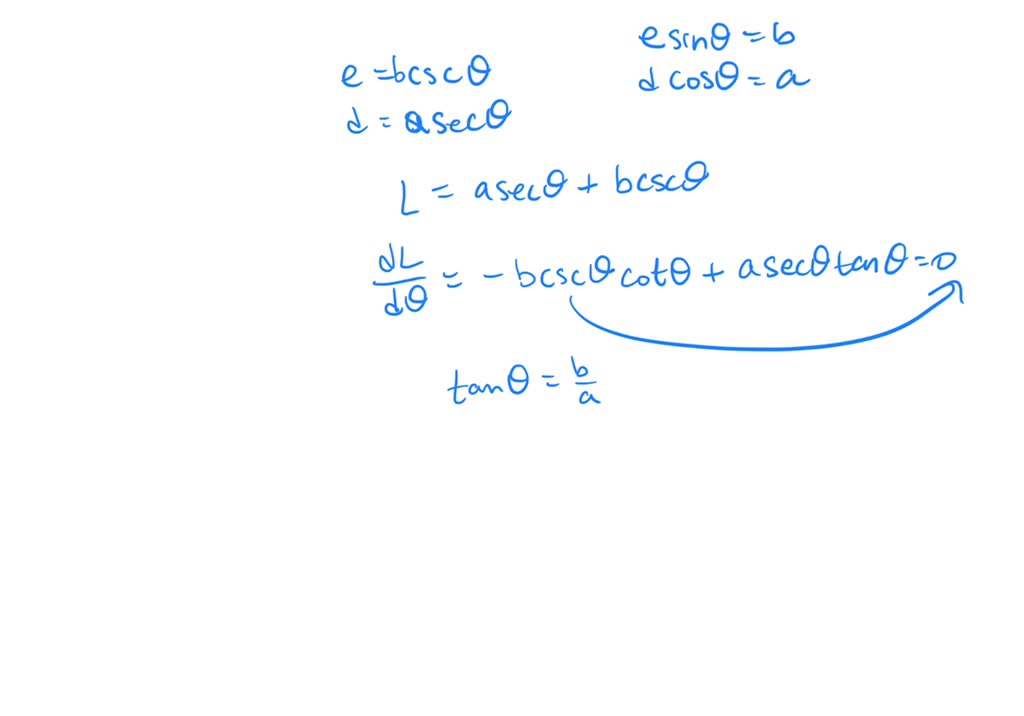 e sinθ = b
e = bcscθ
d cosθ = a
d = asecθ
L = asecθ + bcscθ
dL/dθ = - bcscθcotθ + asecθtanθ = 0
tanθ = b/a